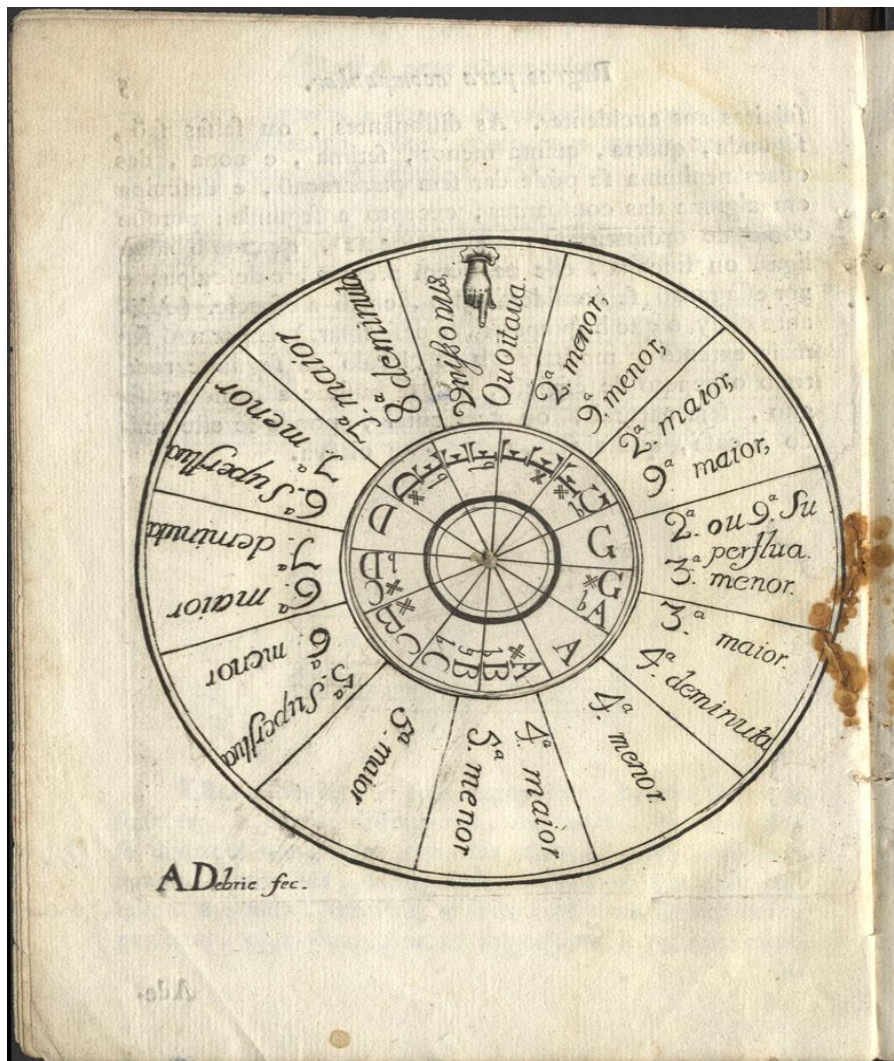 Ou Oitaua
2ª menor,
9ª menor,
2ª maior,
9ª maior,
2ª ou 9ª Su
perflua.
3ª menor.
3ª maior.
4ª deminuta
4ª menor.
4ª maior
5ª menor
5ª maior
5ª Superflua
6ª menor
6ª maior
7ª deminuta
6ª Superflua
7ª menor
7ª maior
8ª deminuta
G
G
G
A
A
A
B
B
C
C
B
C
D
D
D
ADebrie fec.